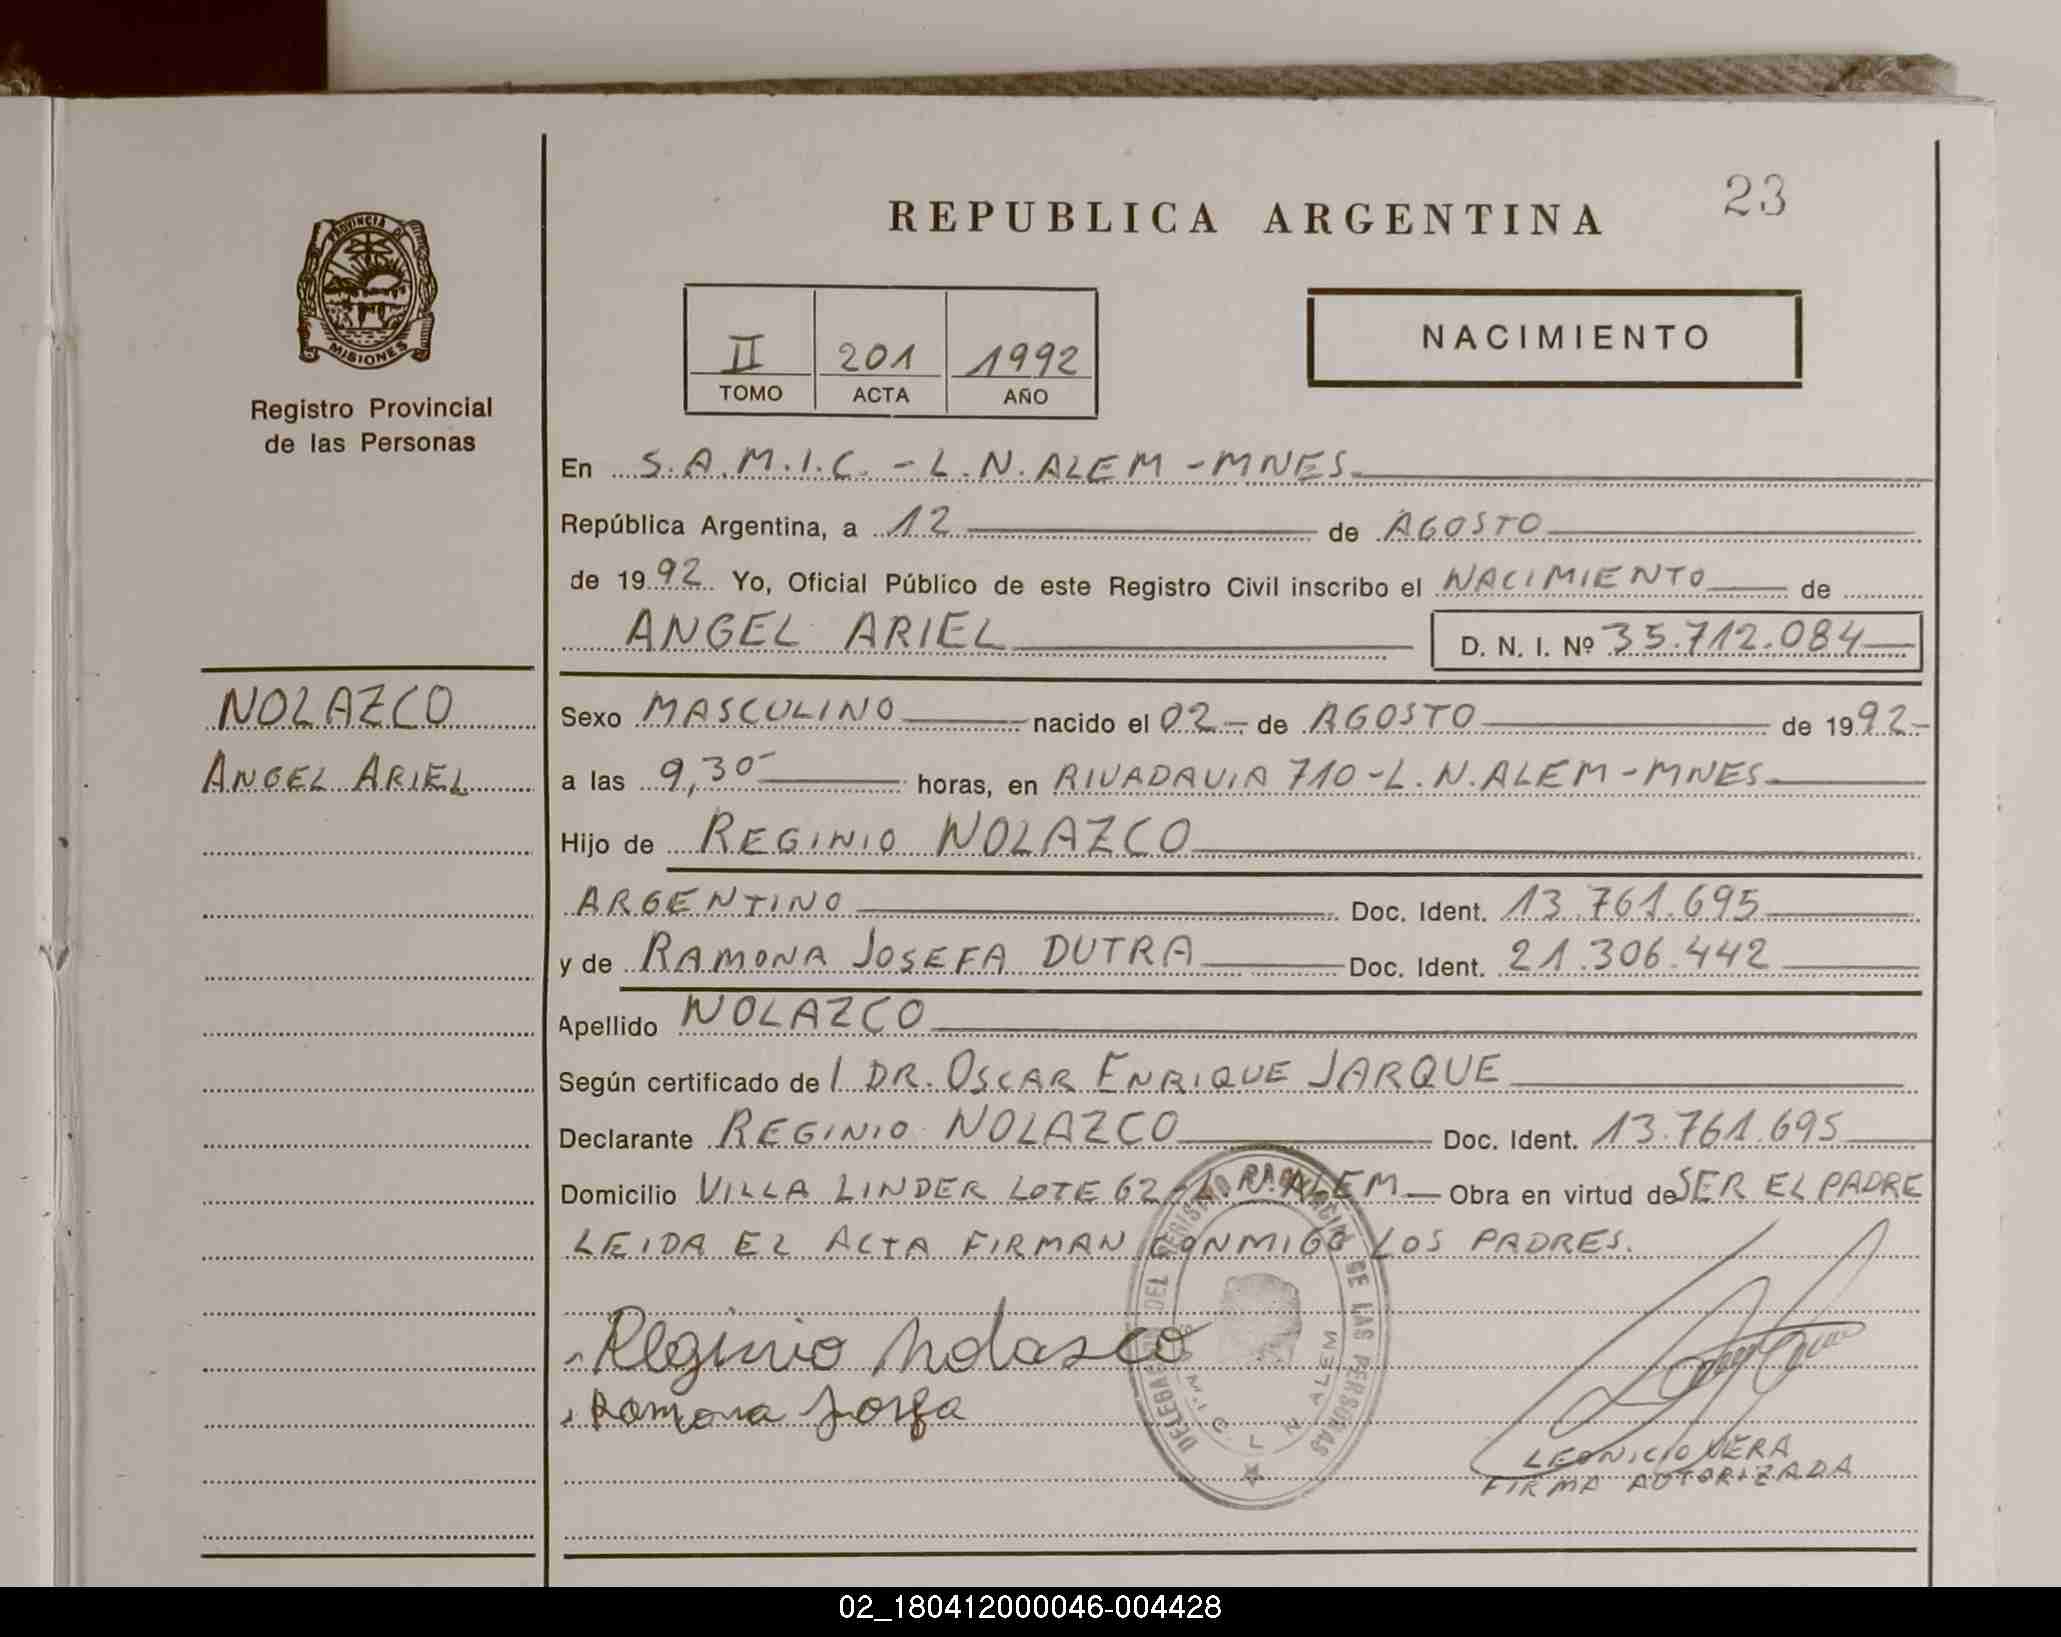 23
REPUBLICA ARGENTINA
PROVINCIA DE
MISIONES
Registro Provincial
de las Personas
II 201 1992
TOMO ACTA AÑO
NACIMIENTO
En S.A.M.I.C. - L.N. ALEM - MNES
República Argentina, a 12 de AGOSTO
de 1992 Yo, Oficial Público de este Registro Civil inscribo el NACIMIENTO de
ANGEL ARIEL D. N. I. Nº 35.712.084
NOLAZCO
ANGEL ARIEL
Sexo MASCULINO nacido el 02 - de AGOSTO de 1992 -
a las 9,30 horas, en RIVADAVIA 710 - L.N. ALEM - MNES
Hijo de REGINIO NOLAZCO
ARGENTINO Doc. Ident. 13.761.695
y de RAMONA JOSEFA DUTRA Doc. Ident. 21.306.442
Apellido NOLAZCO
Según certificado de l DR. OSCAR ENRIQUE JARQUE
Declarante REGINIO NOLAZCO Doc. Ident. 13.761.695
Domicilio VILLA LINDER LOTE 62 - L. N. ALEM - Obra en virtud de SER EL PADRE
LEIDA EL ACTA FIRMAN CONMIGO LOS PADRES.
Reginio Nolasco
Ramona Josefa
DELEGACION DEL REGISTRO PROVINCIAL DE LAS PERSONAS
S.A.M.I.C. L N ALEM
LEONICIO VERA
FIRMA AUTORIZADA
02_180412000046-004428